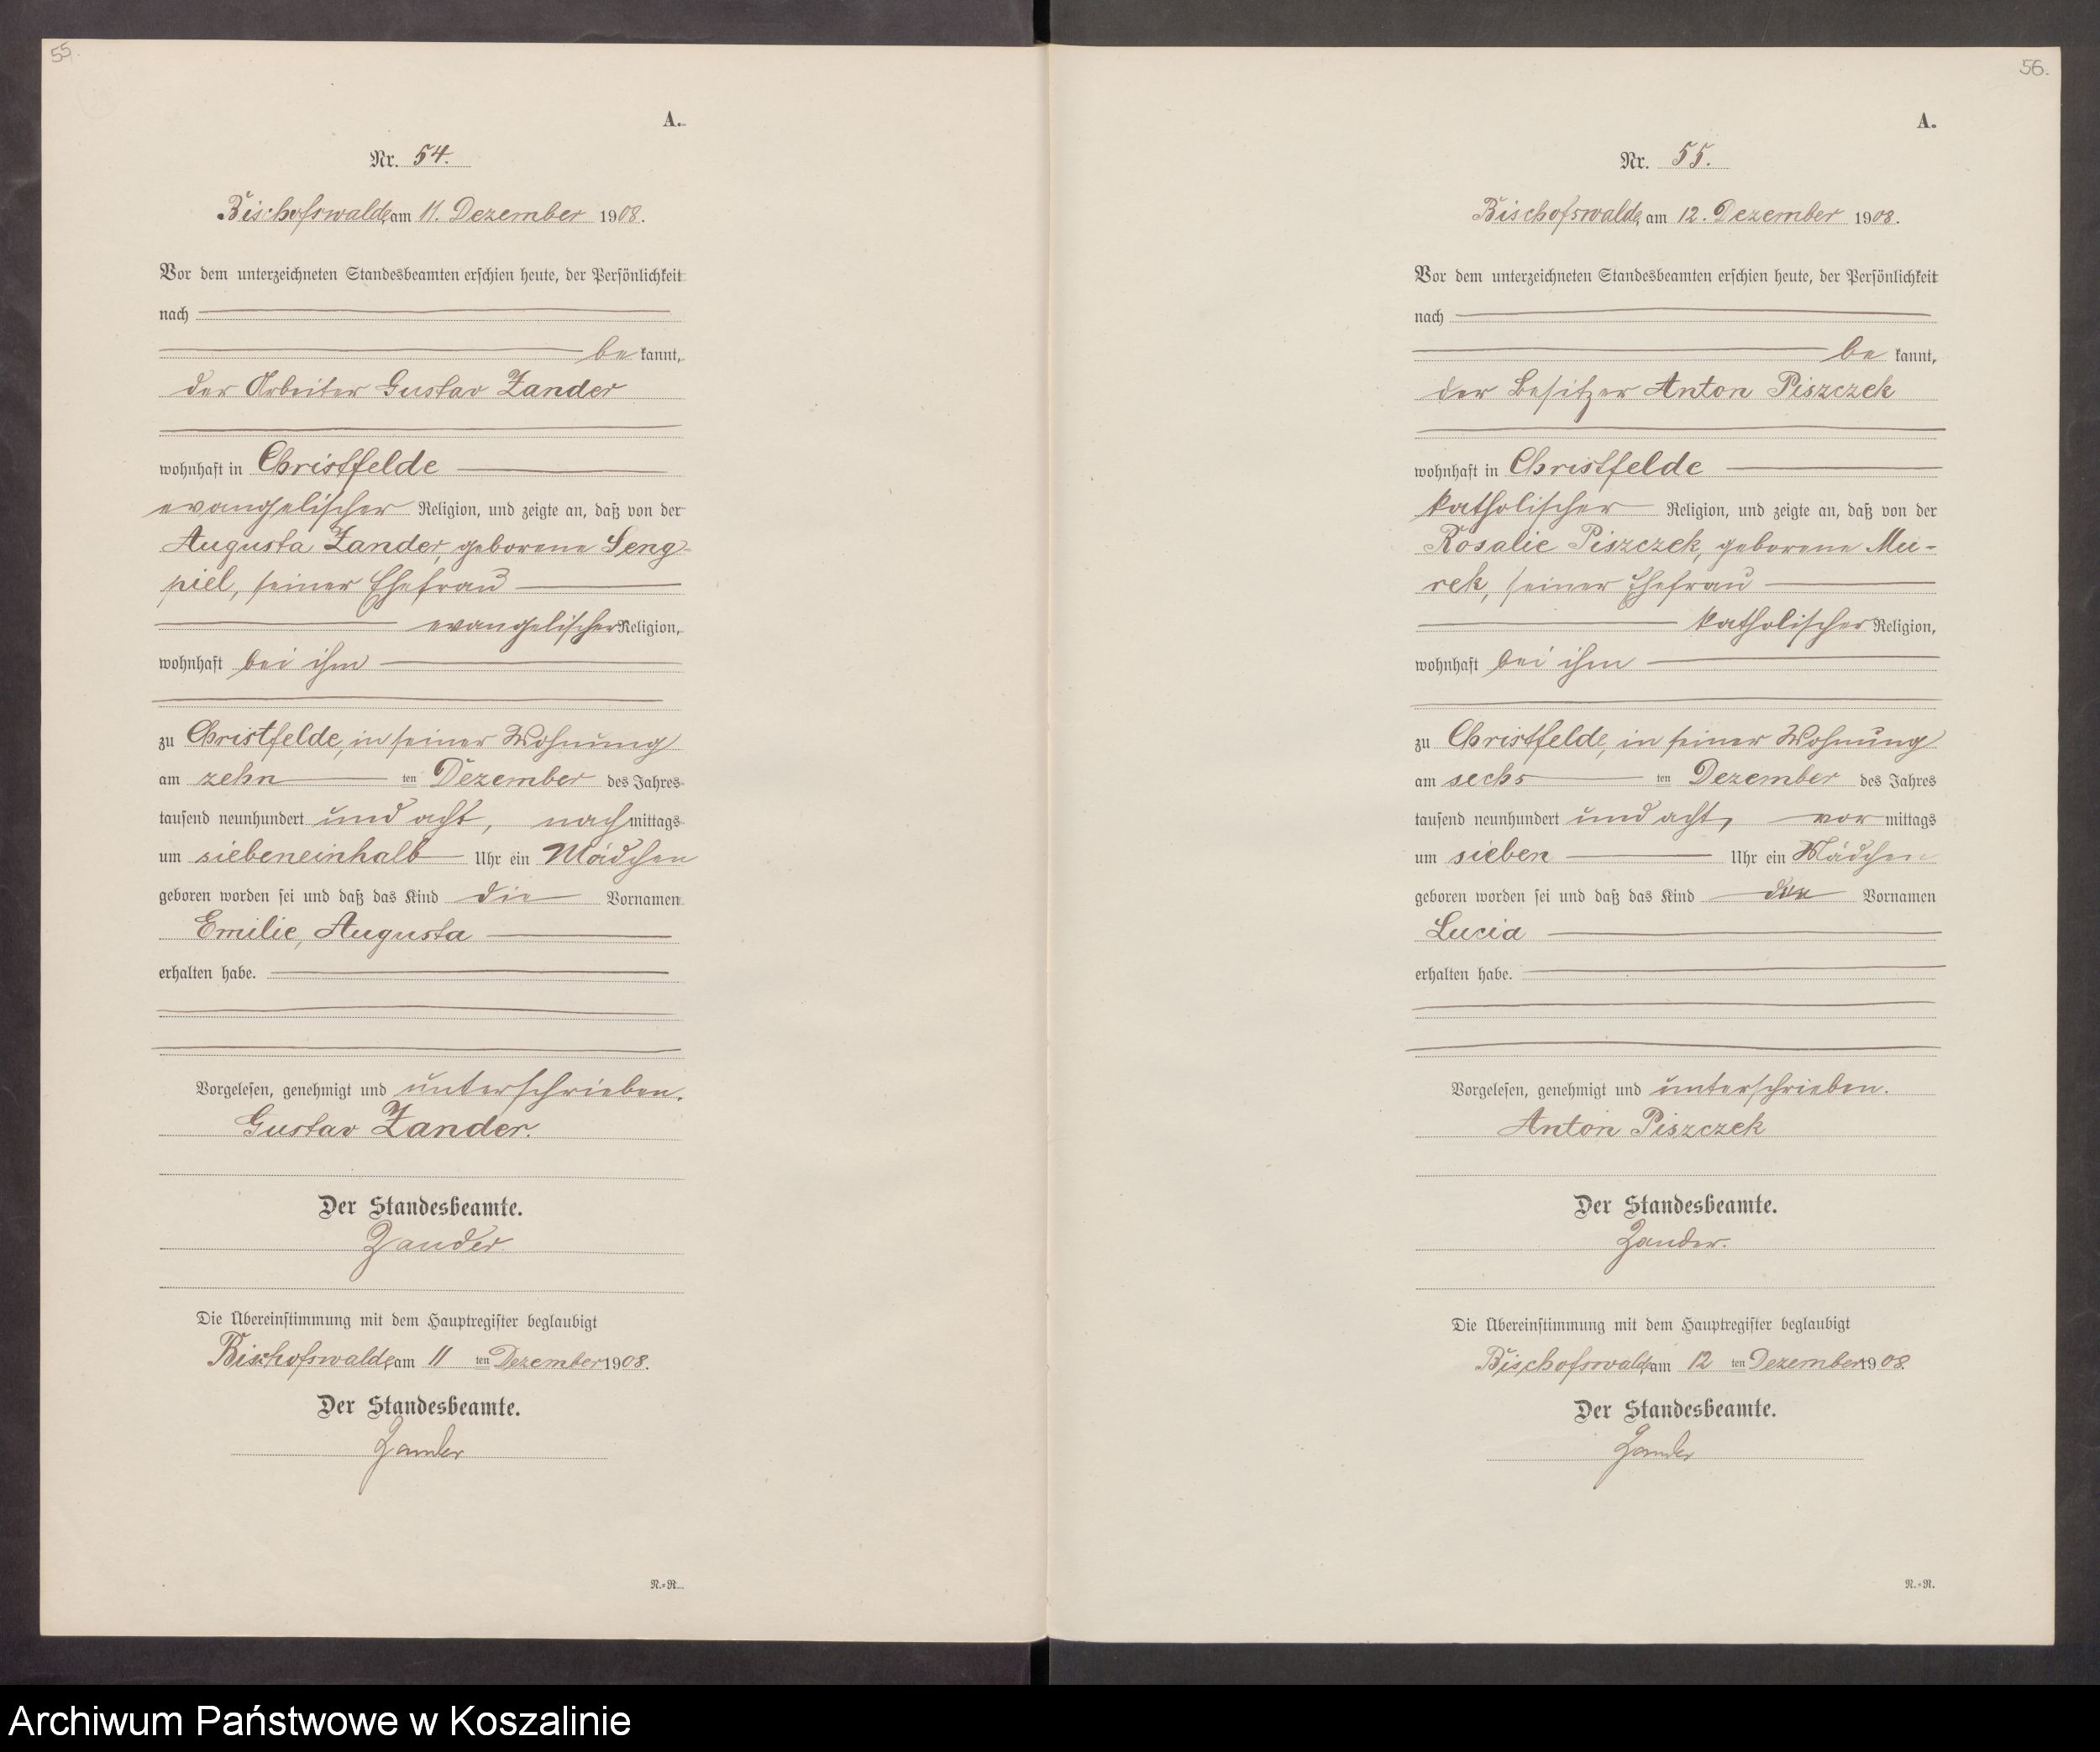 55.
A.
Nr. 54.
Bischofswalde, am 11. Dezember 1908.
Vor dem unterzeichneten Standesbeamten erschien heute, der Persönlichkeit
nach
be kannt,
der Arbeiter Gustav Zander
wohnhaft in Christfelde
evangelischer Religion, und zeigte an, daß von der
Augusta Zander, geborene Seng-
piel, seiner Ehefrau
evangelischer Religion,
wohnhaft bei ihm
zu Christfelde, in seiner Wohnung
am zehn ten Dezember des Jahres
tausend neunhundert und acht, nach mittags
um siebeneinhalb Uhr ein Mädchen
geboren worden sei und daß das Kind die Vornamen
Emilie, Augusta
erhalten habe.
Vorgelesen, genehmigt und unterschrieben.
Gustav Zander.
Der Standesbeamte.
Zander.
Die Übereinstimmung mit dem Hauptregister beglaubigt
Bischofswalde, am 11 ten Dezember 1908.
Der Standesbeamte.
Zander
N.-R.
56.
A.
Nr. 55.
Bischofswalde, am 12. Dezember 1908.
Vor dem unterzeichneten Standesbeamten erschien heute, der Persönlichkeit
nach
be kannt,
der Besitzer Anton Piszczek
wohnhaft in Christfelde
katholischer Religion, und zeigte an, daß von der
Rosalie Piszczek, geborene Mu-
rek, seiner Ehefrau
katholischer Religion,
wohnhaft bei ihm
zu Christfelde, in seiner Wohnung
am sechs ten Dezember des Jahres
tausend neunhundert und acht, vor mittags
um sieben Uhr ein Mädchen
geboren worden sei und daß das Kind den Vornamen
Lucia
erhalten habe.
Vorgelesen, genehmigt und unterschrieben.
Anton Piszczek
Der Standesbeamte.
Zander.
Die Übereinstimmung mit dem Hauptregister beglaubigt
Bischofswalde, am 12 ten Dezember 1908.
Der Standesbeamte.
Zander
N.-R.
Archiwum Państwowe w Koszalinie